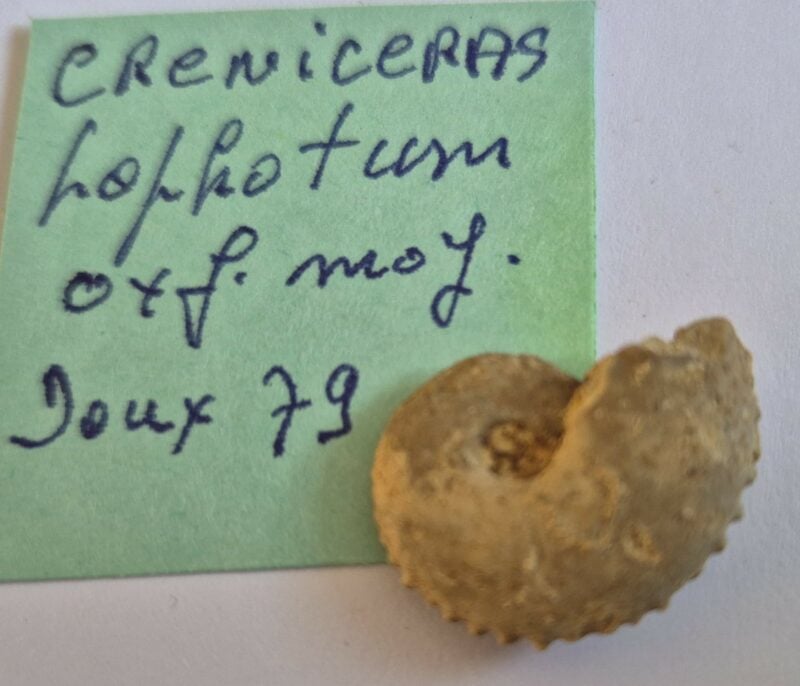 CRENICERAS
lophotum
oxf. moy.
Doux 79